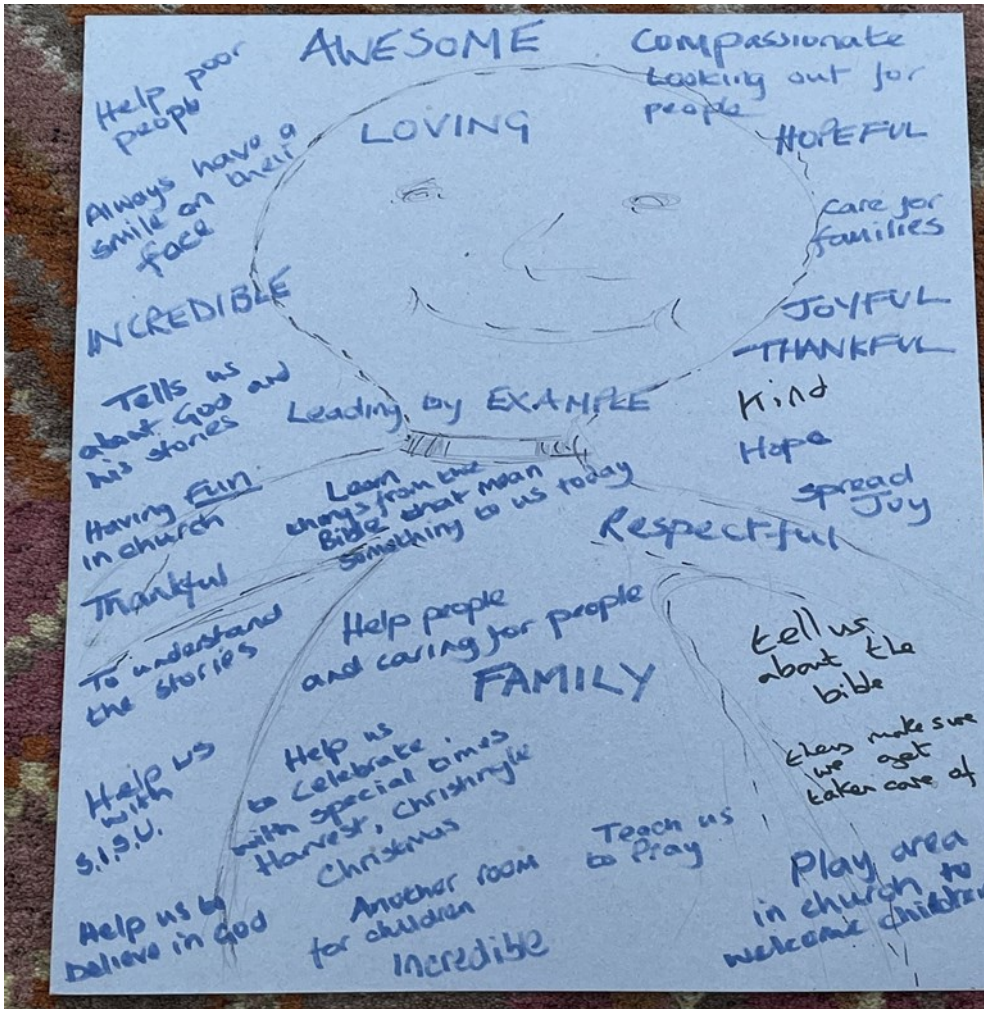 AWESOME
Help poor
people
LOVING
Compassionate
Looking out for
people
HOPEFUL
Always have a
smile on their
face
care for
families
INCREDIBLE
JOYFUL
THANKFUL
Tells us
about God and
his stories
Leading by EXAMPLE
Kind
Hope
Spread
Joy
Having Fun
in church
Learn
things from the
Bible that mean
something to us today
Respectful
Thankful
To understand
the stories
Help people
and caring for people
FAMILY
tell us
about the
bible
Help us
with
S.I.S.U.
Help us
to celebrate
with special times
Harvest, Christingle
Christmas
they make sure
we get
taken care of
Teach us
to Pray
Play area
in church to
welcome children
Help us to
believe in God
Another room
for children
Incredible